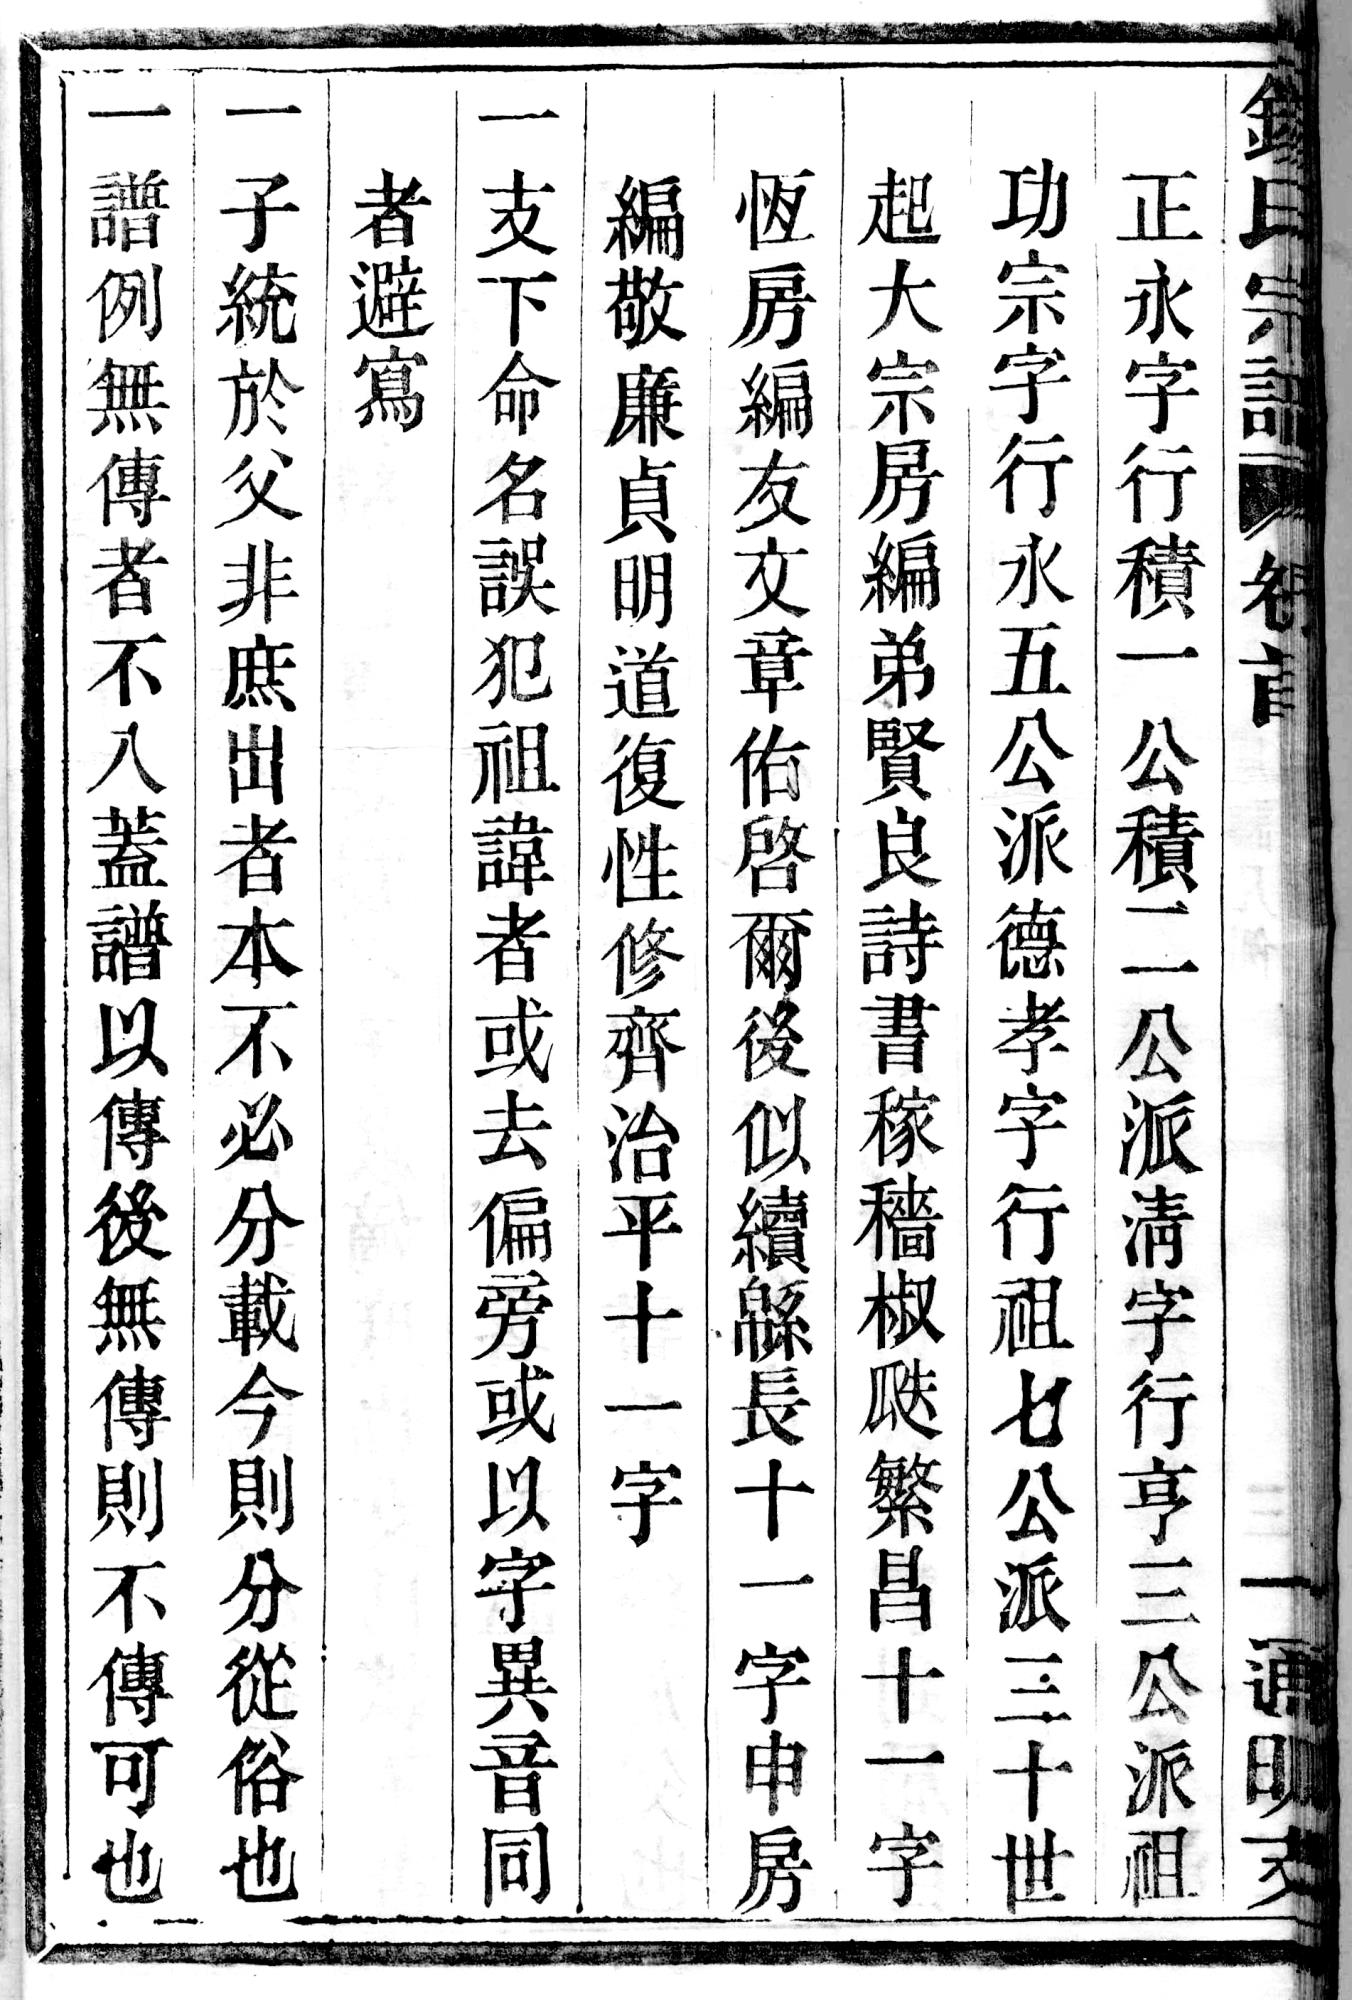 錢氏宗譜 卷首 一 通明支
正永字行積一公積二公派淸字行亨三公派祖
功宗字行永五公派德孝字行祖七公派三十世
起大宗房編弟賢良詩書稼穡椒瓞繁昌十一字
恆房編友文章佑啓爾後似續緜長十一字申房
編敬廉貞明道復性修齊治平十一字
一支下命名誤犯祖諱者或去偏旁或以字異音同
者避寫
一子統於父非庶出者本不必分載今則分從俗也
一譜例無傳者不入蓋譜以傳後無傳則不傳可也